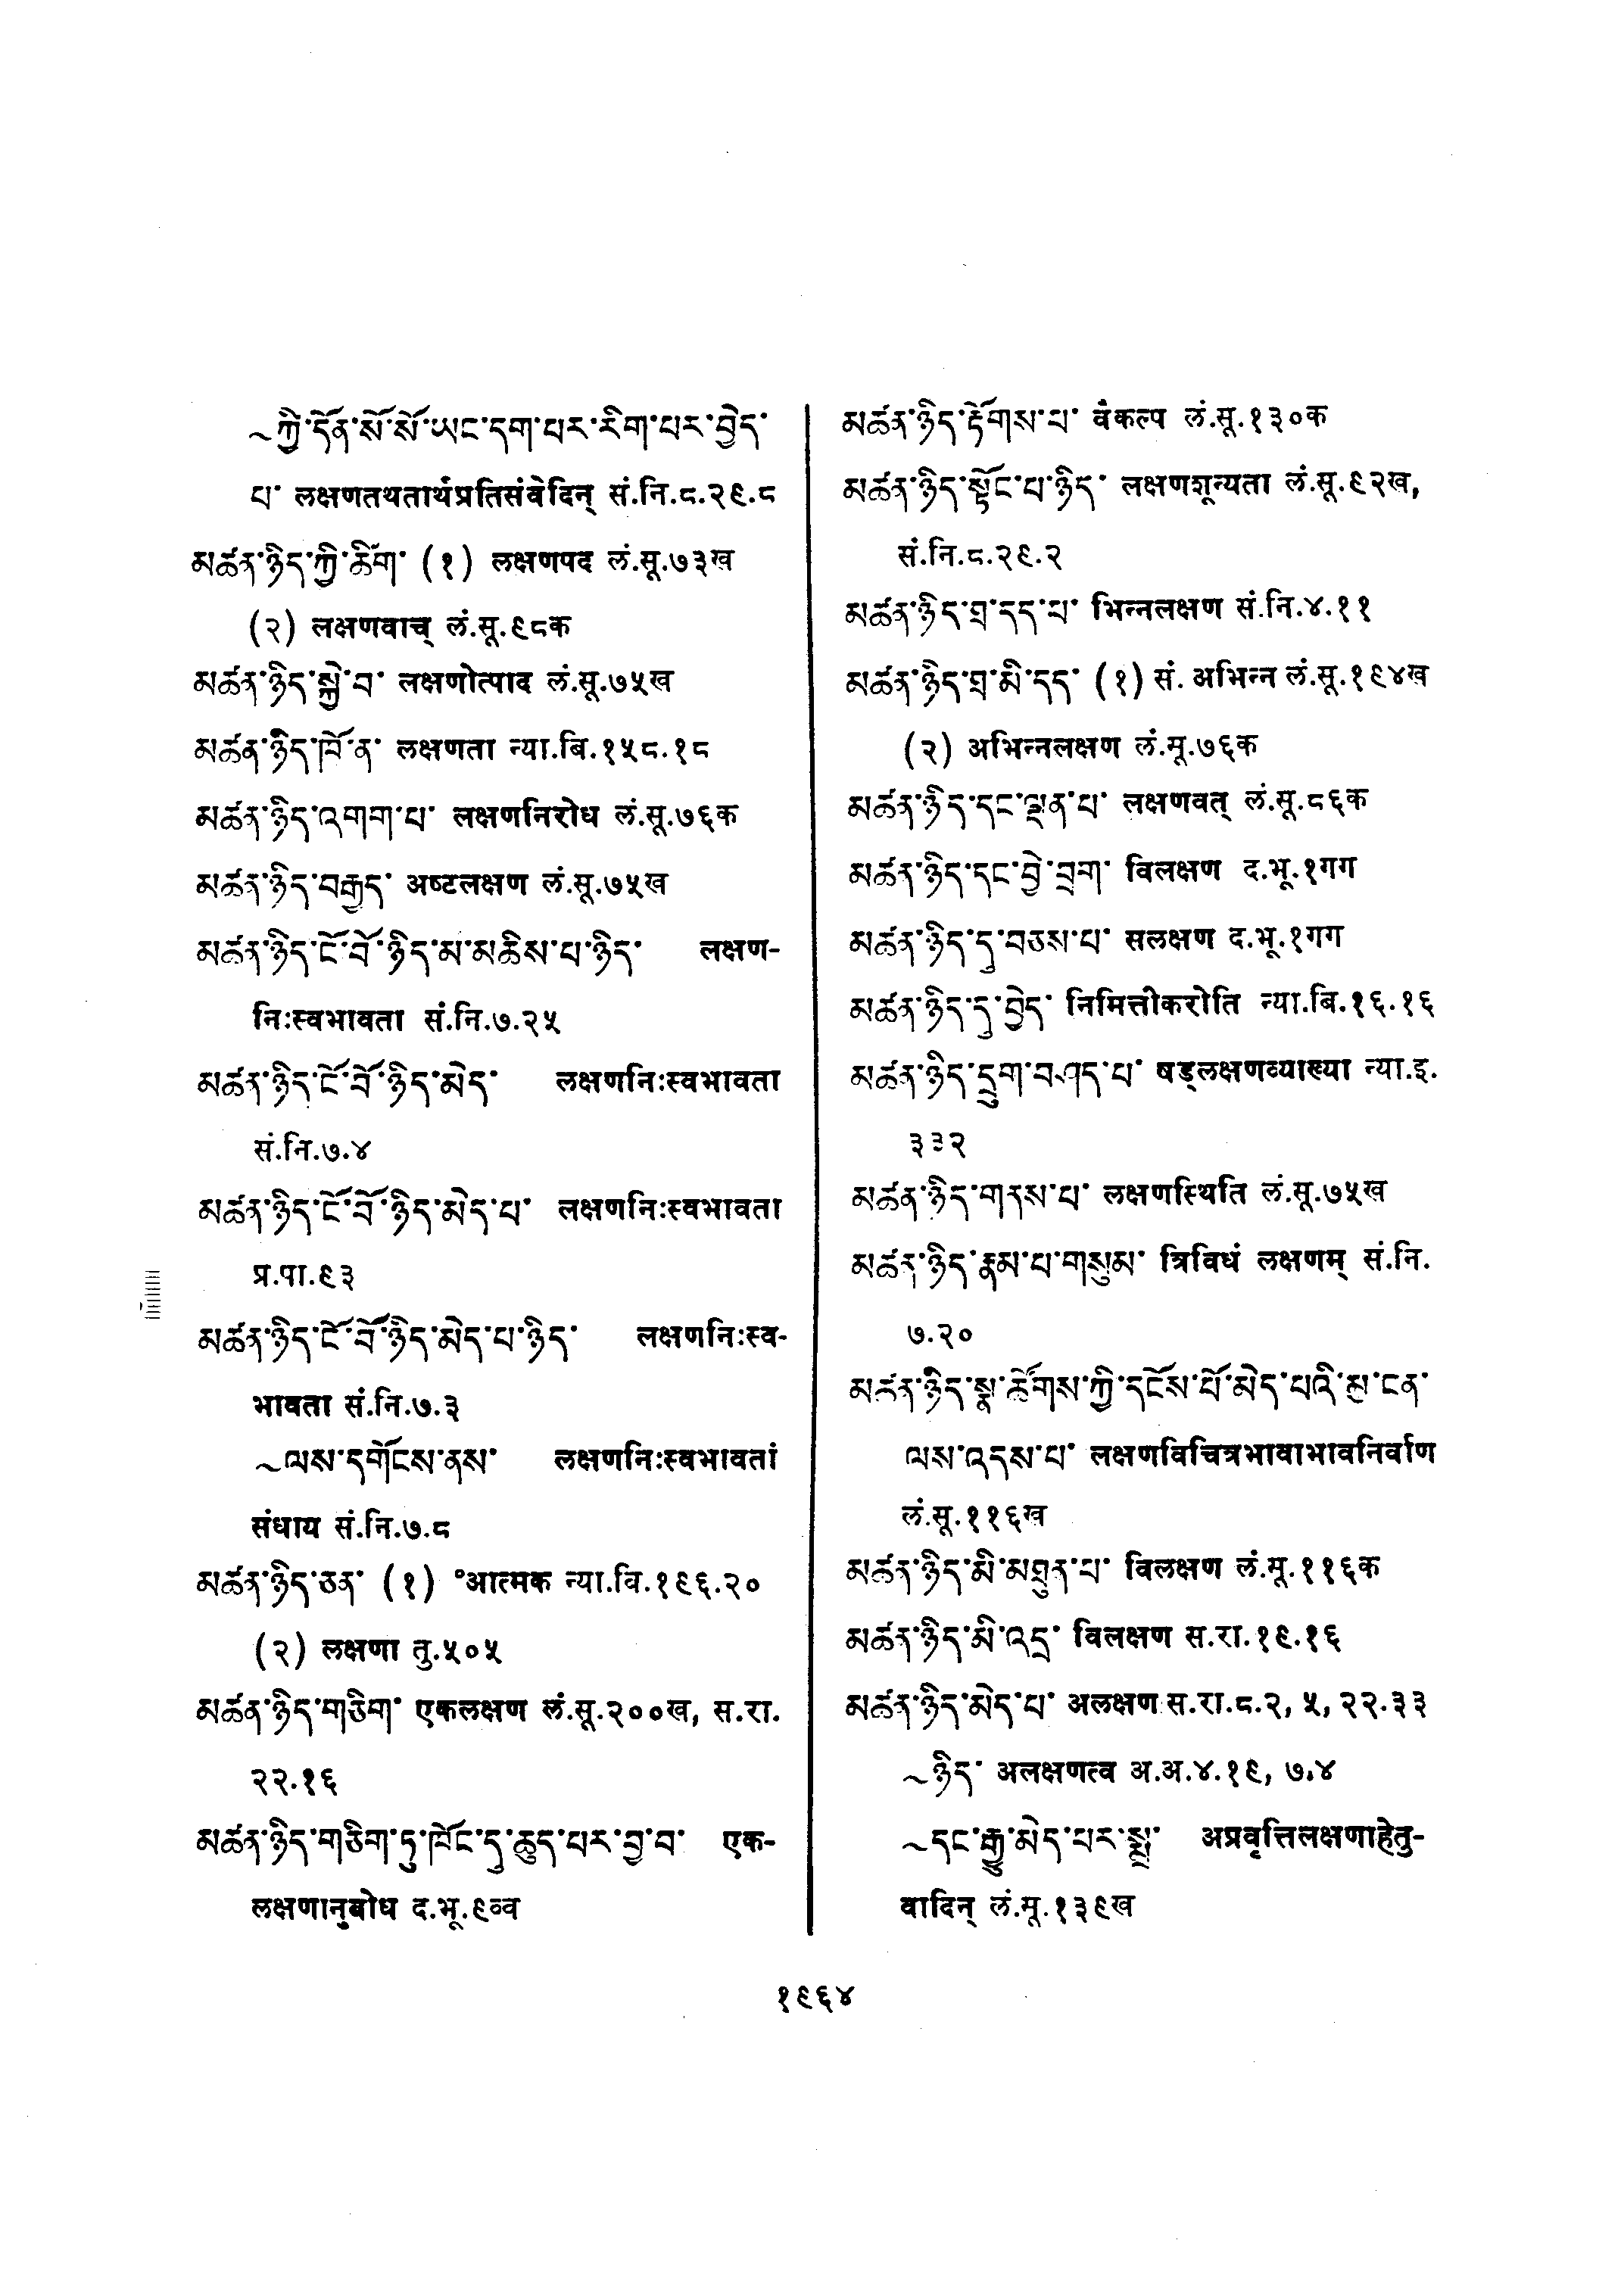 ~ཀྱི་དོན་སོ་སོ་ཡང་དག་པར་རིག་པར་བྱེད་
པ་ लक्षणतथतार्थप्रतिसंवेदिन् सं.नि.८.२९.८
མཚན་ཉིད་ཀྱི་ཚིག་ (१) लक्षणपद लं.सू.७३ख
(२) लक्षणवाच् लं.सू.९८क
མཚན་ཉིད་སྐྱེ་བ་ लक्षणोत्पाद लं.सू.७५ख
མཚན་ཉིད་ཁོ་ན་ लक्षणता न्या.बि.१५८.१८
མཚན་ཉིད་འགག་པ་ लक्षणनिरोध लं.सू.७६क
མཚན་ཉིད་བརྒྱད་ अष्टलक्षण लं.सू.७५ख
མཚན་ཉིད་ངོ་བོ་ཉིད་མ་མཆིས་པ་ཉིད་ लक्षण-
निःस्वभावता सं.नि.७.२५
མཚན་ཉིད་ངོ་བོ་ཉིད་མེད་ लक्षणनिःस्वभावता
सं.नि.७.४
མཚན་ཉིད་ངོ་བོ་ཉིད་མེད་པ་ लक्षणनिःस्वभावता
प्र.पा.९३
མཚན་ཉིད་ངོ་བོ་ཉིད་མེད་པ་ཉིད་ लक्षणनिःस्व-
भावता सं.नि.७.३
~ལས་དགོངས་ནས་ लक्षणनिःस्वभावतां
संधाय सं.नि.७.८
མཚན་ཉིད་ཅན་ (१) °आत्मक न्या.वि.१९६.२०
(२) लक्षणा तु.५०५
མཚན་ཉིད་གཅིག་ एकलक्षण लं.सू.२००ख, स.रा.
२२.१६
མཚན་ཉིད་གཅིག་ཏུ་ཁོང་དུ་ཆུད་པར་བྱ་བ་ एक-
लक्षणानुबोध द.भू.९व्व
མཚན་ཉིད་རྟོགས་པ་ वंकल्प लं.सू.१३०क
མཚན་ཉིད་སྟོང་པ་ཉིད་ लक्षणशून्यता लं.सू.९२ख,
सं.नि.८.२९.२
མཚན་ཉིད་ཐ་དད་པ་ भिन्नलक्षण सं.नि.४.११
མཚན་ཉིད་ཐ་མི་དད་ (१) सं. अभिन्न लं.सू.१९४ख
(२) अभिन्नलक्षण लं.सू.७६क
མཚན་ཉིད་དང་ལྡན་པ་ लक्षणवत् लं.सू.८६क
མཚན་ཉིད་དང་བྱེ་བྲག་ विलक्षण द.भू.१गग
མཚན་ཉིད་དུ་བཅས་པ་ सलक्षण द.भू.१गग
མཚན་ཉིད་དུ་བྱེད་ निमित्तीकरोति न्या.बि.१६.१६
མཚན་ཉིད་དྲུག་བཤད་པ་ षड्लक्षणव्याख्या न्या.इ.
३३२
མཚན་ཉིད་གནས་པ་ लक्षणस्थिति लं.सू.७५ख
མཚན་ཉིད་རྣམ་པ་གསུམ་ त्रिविधं लक्षणम् सं.नि.
७.२०
མཚན་ཉིད་སྣ་ཚོགས་ཀྱི་དངོས་པོ་མེད་པའི་མྱ་ངན་
ལས་འདས་པ་ लक्षणविचित्रभावाभावनिर्वाण
लं.सू.११६ख
མཚན་ཉིད་མི་མཐུན་པ་ विलक्षण लं.सू.११६क
མཚན་ཉིད་མི་འདྲ་ विलक्षण स.रा.१९.१६
མཚན་ཉིད་མེད་པ་ अलक्षण स.रा.८.२, ५, २२.३३
~ཉིད་ अलक्षणत्व अ.अ.४.१९, ७.४
~དང་རྒྱུ་མེད་པར་སྨྲ་ अप्रवृत्तिलक्षणाहेतु-
वादिन् लं.सू.१३९ख
१९६४